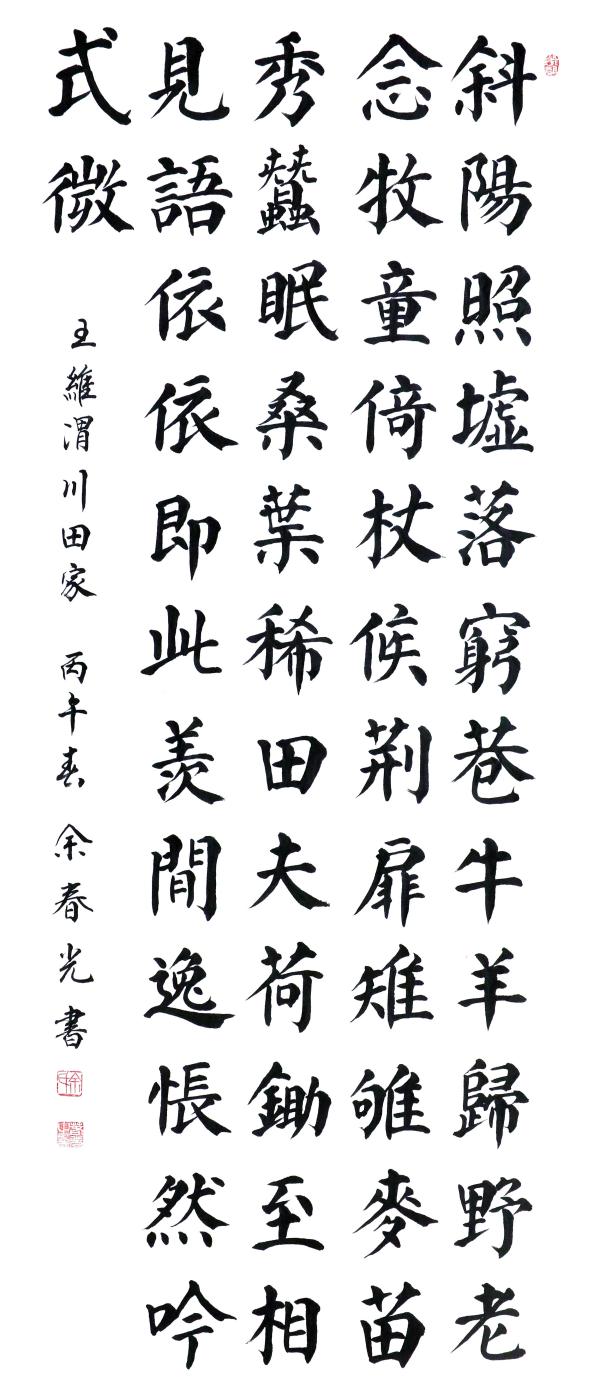 斜陽照墟落窮巷牛羊歸野老
念牧童倚杖候荆扉雉雊麥苗
秀蠶眠桑葉稀田夫荷鋤至相
見語依依即此羨閒逸悵然吟
式微
王維渭川田家 丙午春 余春光書